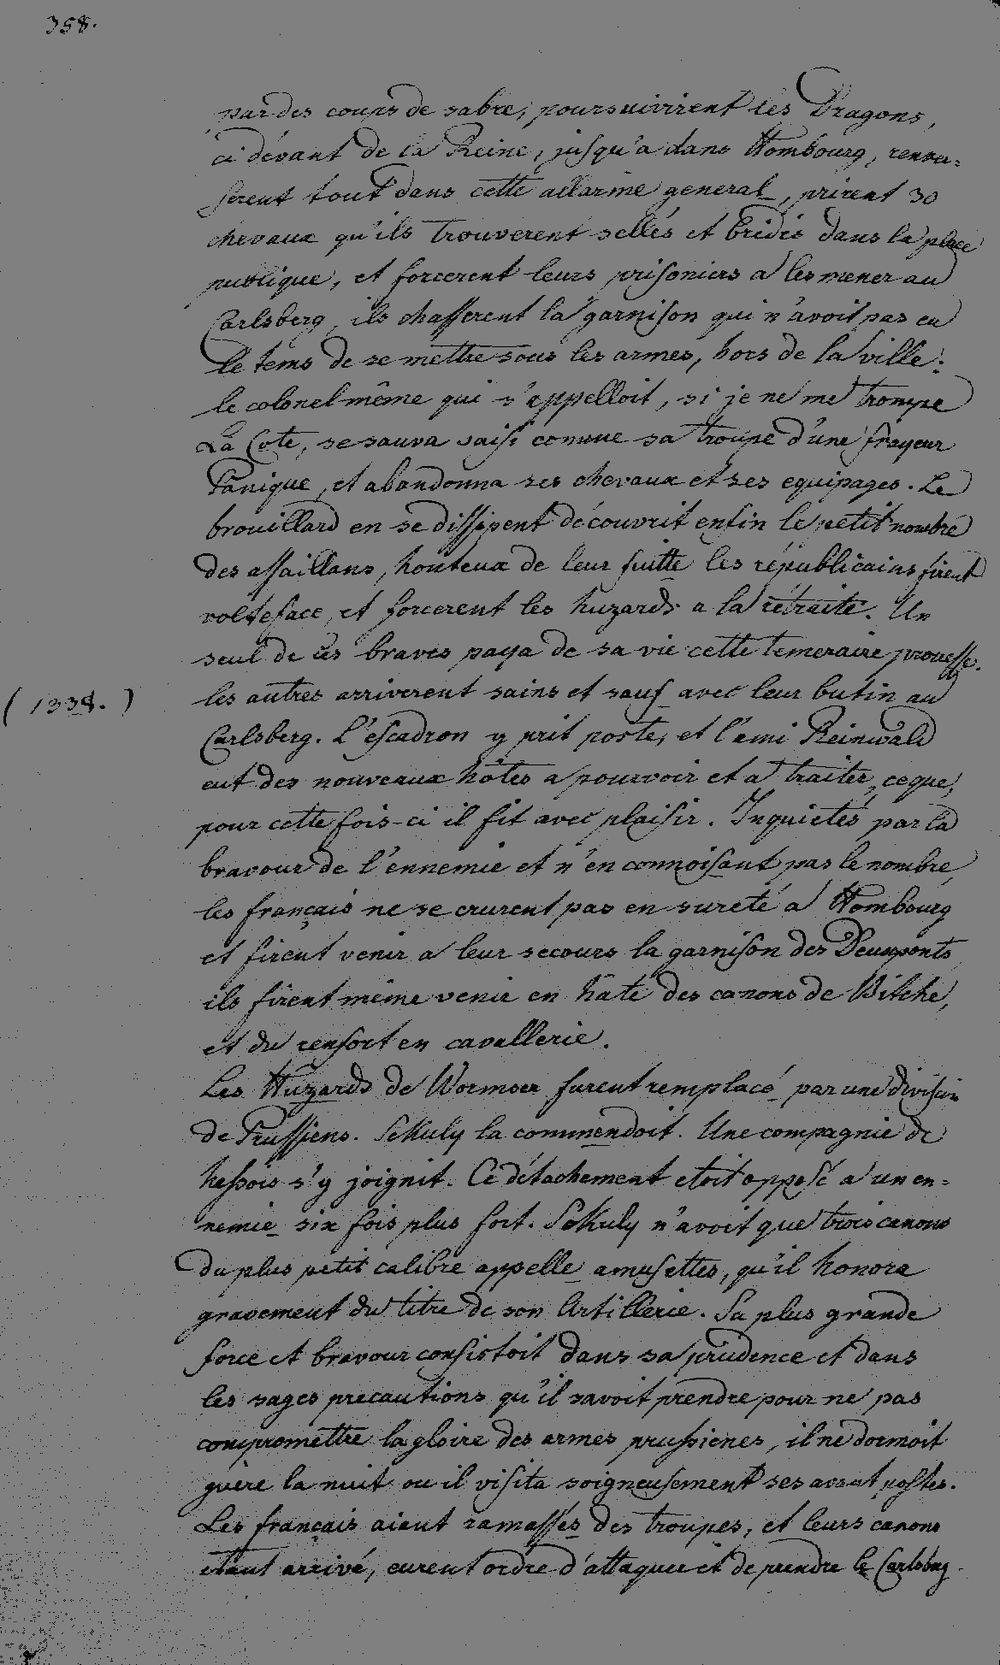 358.
par des coups de sabre, poursuivirent les Dragons,
ci dévant de la Reine, jusqu'a dans Hombourg, renver=
serent tout dans cette allarme general, prirent 30
chevaux qu'ils trouverent sellés et bridés dans la place
publique, et forcerent leurs prisoniers a les mener au
Carlsberg, ils chasserent la garnison qui n'avoit pas eu
le tems de se mettre sous les armes, hors de la ville:
le colonel même qui s'appelloit, si je ne me trompe
La Cote, se sauva saisi comme sa troupe d'une frayeur
Panique, et abandonna ses chevaux et ses equipages. Le
brouillard en se dissipent découvrit enfin le petit nombre
des assaillans, honteux de leur fuitte les républicains firent
volteface, et forcerent les huzards a la rétraite. Un
seul de ces braves paya de sa vie cette temeraire prouesse.
(1338.) les autres arriverent sains et sauf avec leur butin au
Carlsberg. L'escadron y prit poste, et l'ami Reinwald
eut des nouveaux hôtes a pourvoir et a traiter, ceque,
pour cette fois-ci il fit avec plaisir. Inquietés par la
bravour de l'ennemie et n'en connoisant pas le nombre,
les français ne se crurent pas en sureté a Hombourg
et firent venir a leur secours la garnison des Deuxponts,
ils firent même venir en hâte des canons de Bitche,
et du renfort en cavallerie.
Les Huzards de Wormser furent remplacé par une division
de Prussiens. Sekuly la commendoit. Une compagnie de
hessois s'y joignit. Ce détachement etoit opposé a un en=
nemie six fois plus fort. Sekuly n'avoit que trois canons
du plus petit calibre appelle amusettes, qu'il honora
gravement du titre de son Artillerie. Sa plus grande
force et bravour consistoit dans sa prudence et dans
les sages precautions qu'il savoit prendre pour ne pas
compromettre la gloire des armes prussienes, il ne dormoit
guère la nuit ou il visita soigneusement ses avant postes.
Les français aiant ramassés des troupes, et leurs canons
etant arrivé, eurent ordre d'attaquer et de prendre le Carlsberg